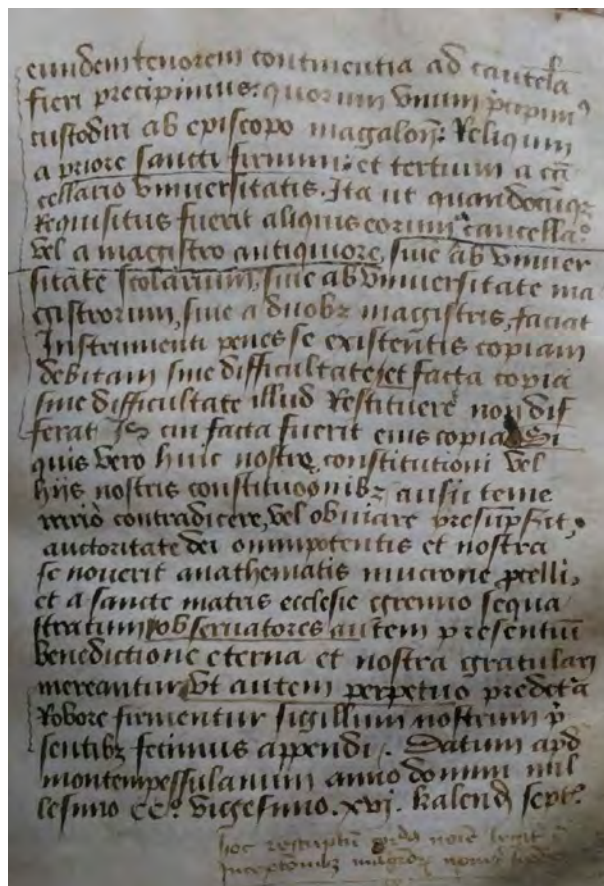 eundem tenorem continentia ad cautelā
fieri precipimus: quorum vnum p̄cipimꝰ
custodiri ab episcopo magalon̄: Reliqum
a priore sancti firmini: et tertium a cā
cellario vniuersitatis. Ita ut quandocūqꝫ
Requisitus fuerit aliquis eorum a cancella.º
vel a magistro antiquiore, siue ab vniuer
sitate scolarium, siue ab vniuersitate ma
gistrorum, siue a duobꝫ magistris, faciat
Instrumenti penes se existentis copiam
debitam sine difficultate, et facta copia
sine difficultate illud Restituere non dif
ferat cui facta fuerit eius copia Si
quis vero huic nostre, constitutioni vel
hiis nostris constitucionibꝫ ausu teme
rario contradicere, vel obuiare presūpserit,
auctoritate dei omnipotentis et nostra
se nouerit anathematis mucrone ꝑcelli,
et a sancte matris ecclesie gremio sequa
stratum, obseruatores autem presentiū
benedictione eterna et nostra gratulari
mereantur, Vt autem perpetuo predc̄a
Robore firmentur sigillum nostrum p̄
sentibꝫ fecimus appendi. Datum apd
montempessulanum anno domini mil
lesimo CC.º vigesimo. xvj. kalend septē.
hoc legit
magroꝝ